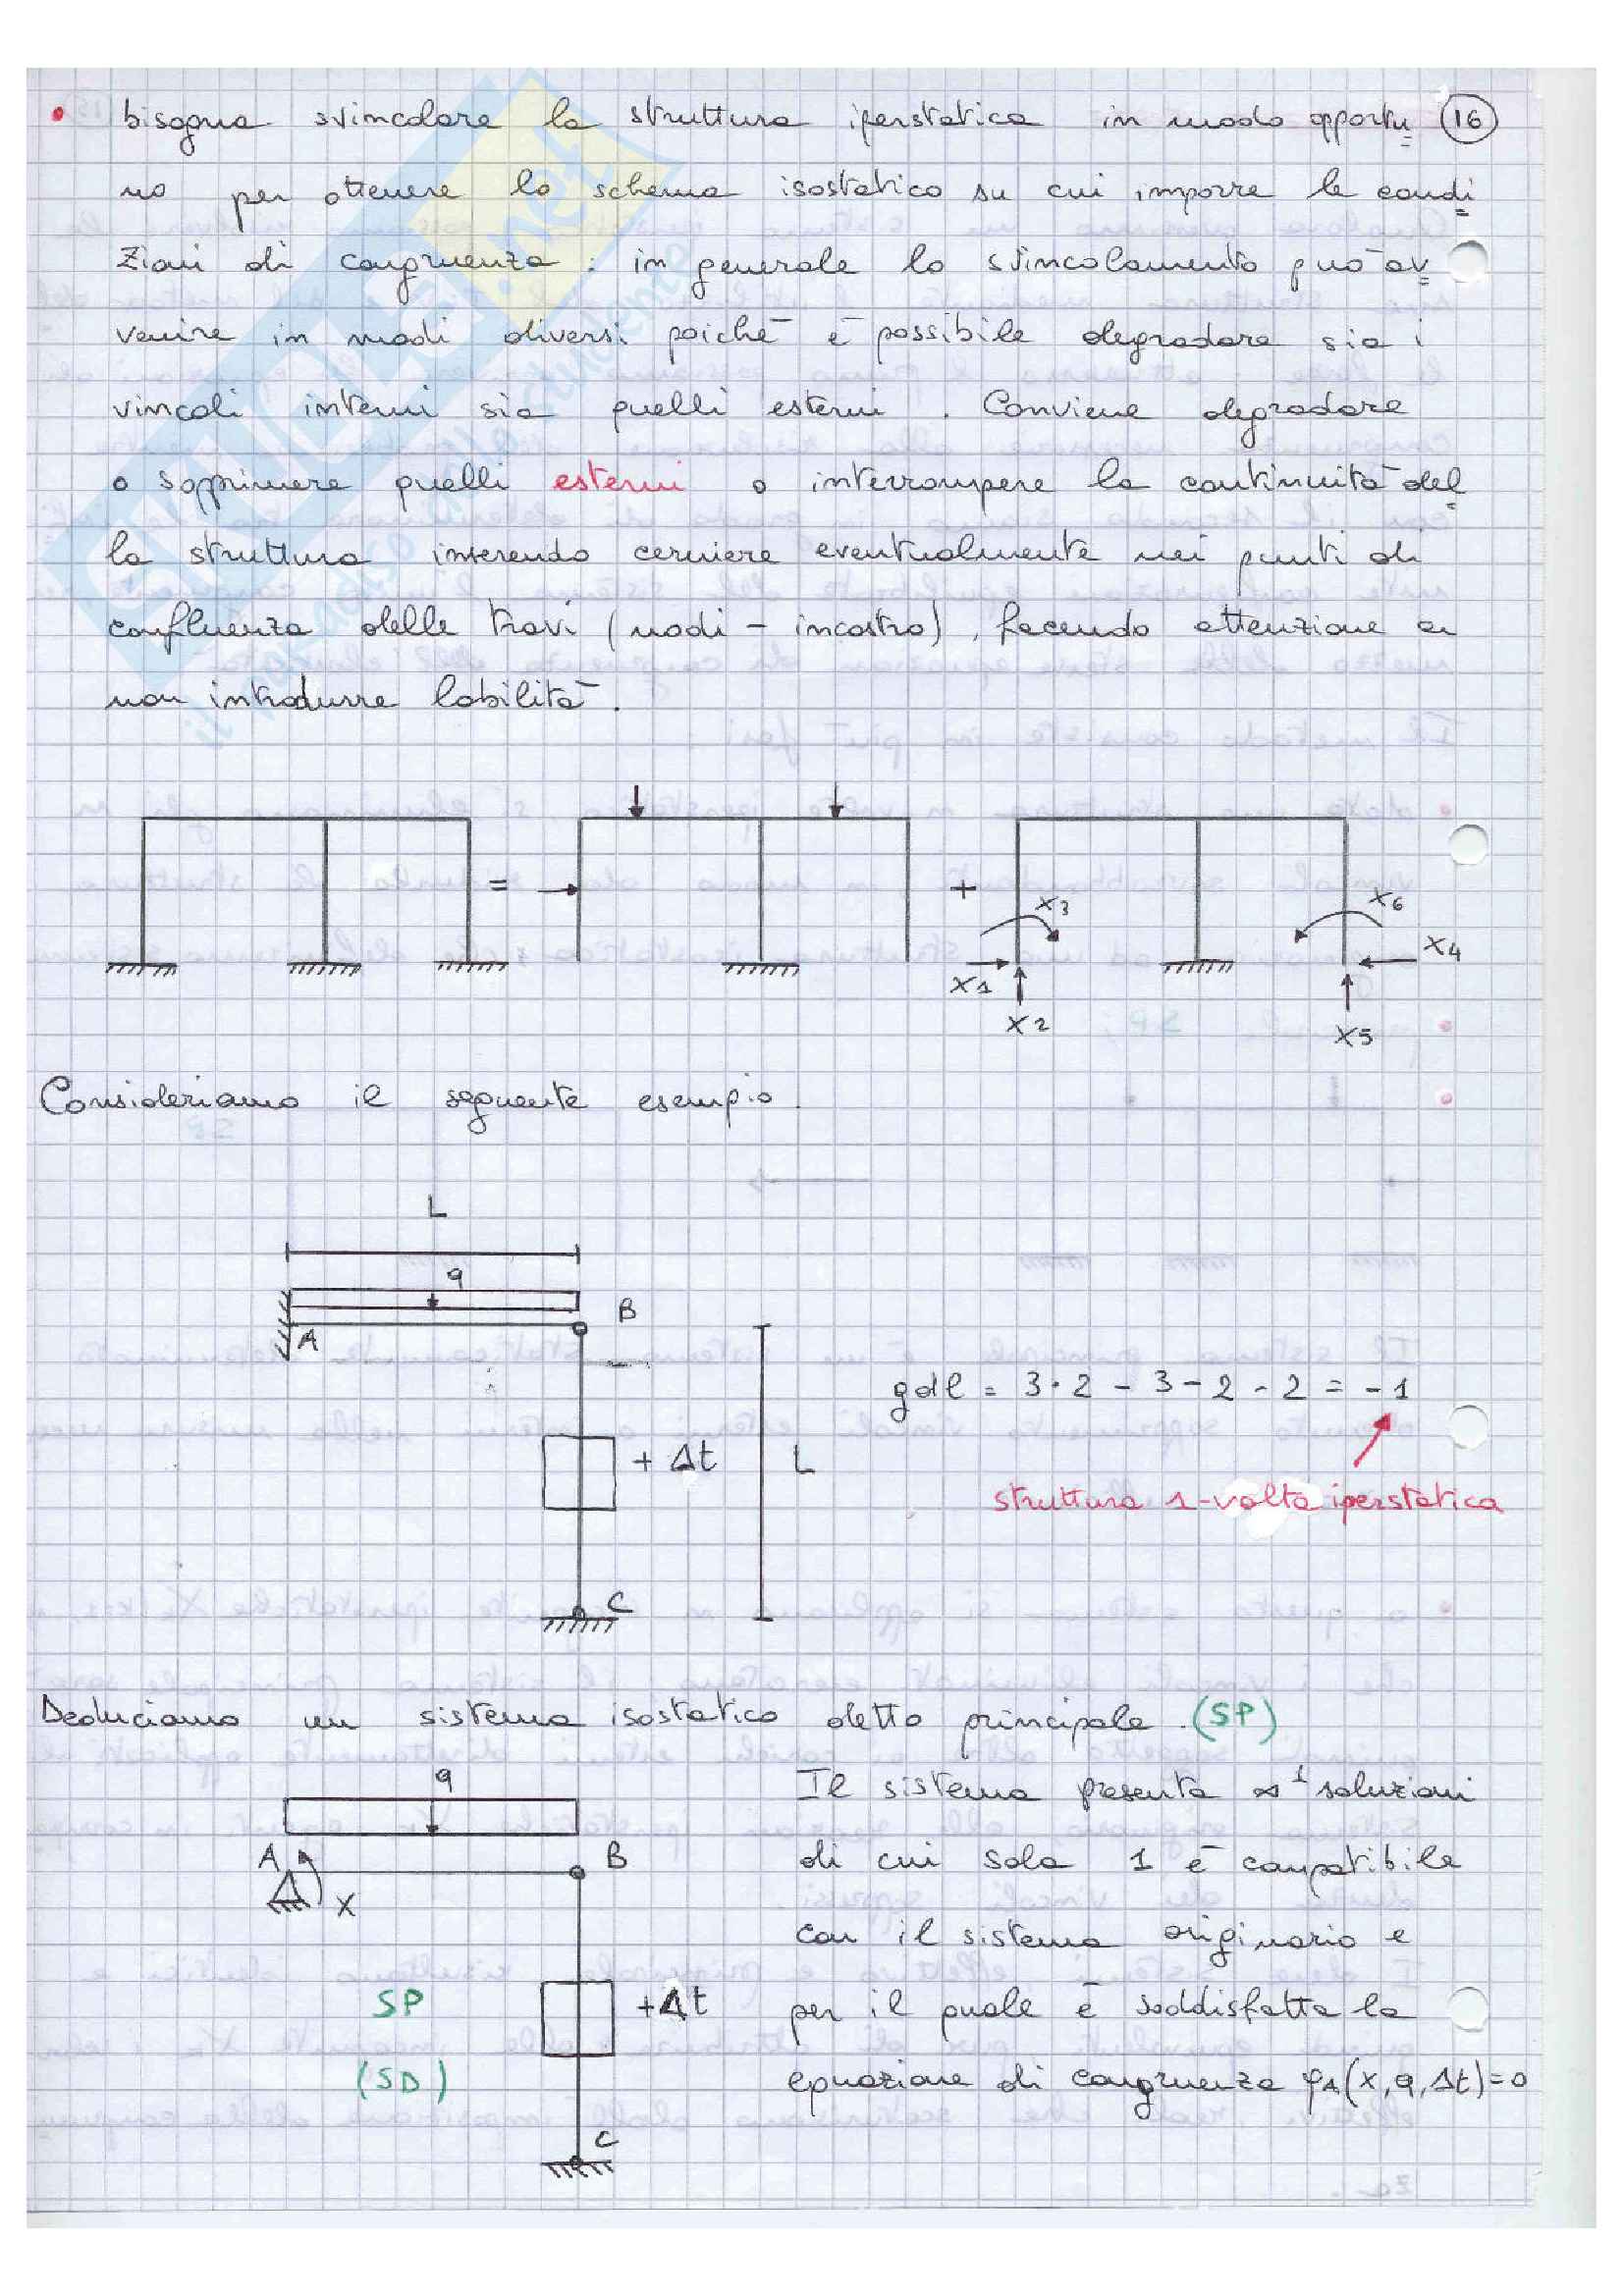 • bisogna svincolare la struttura iperstatica in modo opportu 16
no per ottenere lo schema isostatico su cui imporre le condi
zioni di congruenza : in generale lo svincolamento può av
venire in modi diversi poichè è possibile degradare sia i
vincoli interni sia quelli esterni . Conviene degradare
o sopprimere quelli esterni o interrompere la continuità del
la struttura inserendo cerniere eventualmente nei punti di
confluenza delle travi (nodi - incastro), facendo attenzione a
non introdurre labilità.
= + X3 X6
X1 X4
X2 X5
Consideriamo il seguente esempio.
L
q
A B
gdl = 3·2 - 3 - 2 - 2 = -1
+ Δt L
struttura 1-volta iperstatica
C
Deduciamo un sistema isostatico detto principale. (SP)
q Il sistema presenta ∞¹ soluzioni
A B di cui sola 1 è compatibile
X
con il sistema originario e
SP +Δt per il quale è soddisfatta la
(SD) equazione di congruenza φA(X,q,Δt)=0
C
SKUOLA.net